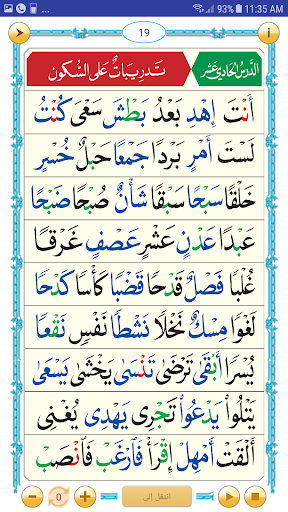 93% 11:35 AM
19
الدَّرْسُ الحَادِي عَشَرَ تَدْرِيبَاتٌ عَلَى السُّكُونِ
أَنْتَ اِهْدِ بَعْدُ بَطْشَ سَعْىَ كُنْتُ
لَسْتَ أَمْرٍ بَرْدًا جَمْعًا حَبْلٌ خُسْرٍ
خَلْقًا سَبْحًا سَبْقًا شَأْنٌ صُبْحًا ضَبْحًا
عَبْدًا عَدْنٍ عَشْرٍ عَصْفٍ غَرْقًا
غُلْبًا فَصْلٌ قَدْحًا قَضْبًا كَأْسًا كَدْحًا
لَغْوًا مِسْكٌ نَخْلًا نَشْطًا نَفْسٍ نَقْعًا
يُسْرًا أَبْقَى تَرْضَى تَنْسَى يَخْشَى يَسْعَى
يَتْلُوا يَدْعُوا تَجْرِى يَهْدِى يُغْنِى
أَلْقَتْ أَمْهِلْ اِقْرَأْ فَارْغَبْ فَانْصَبْ
0 انتقل إلى